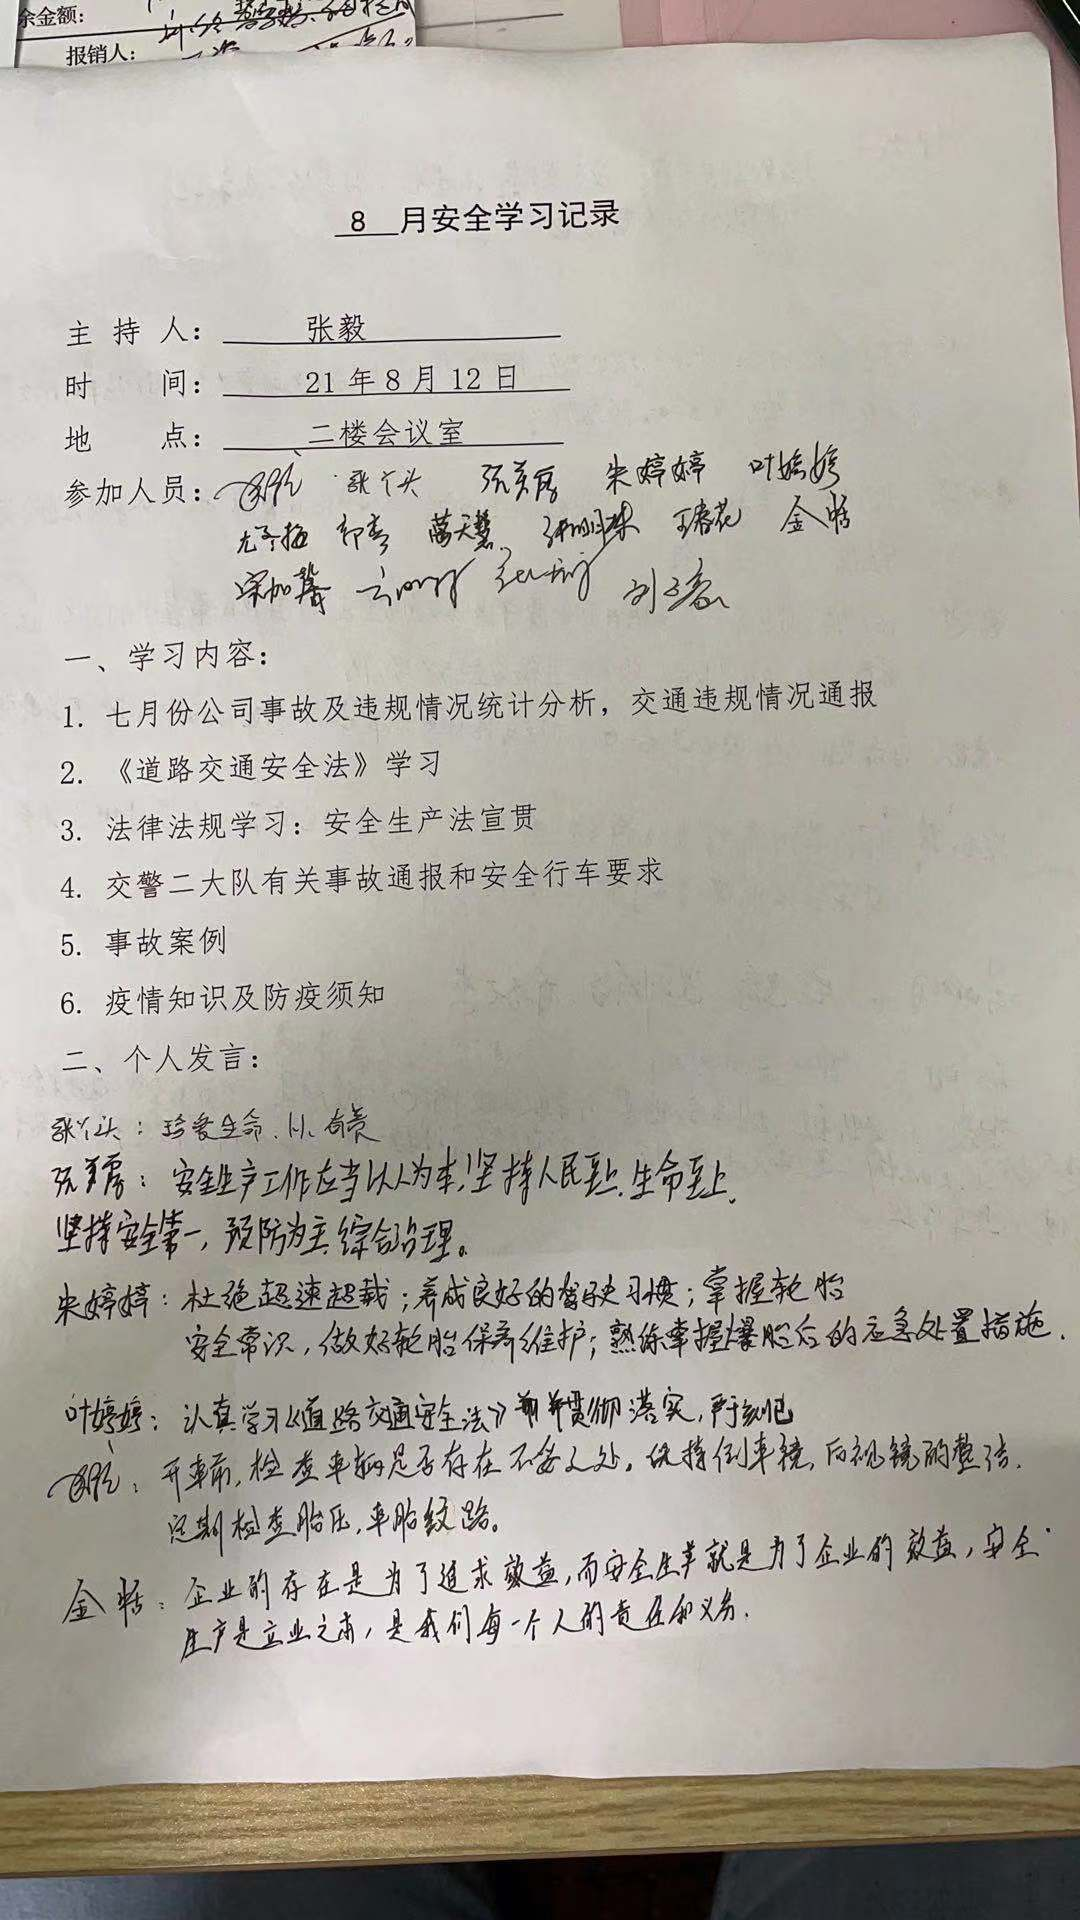 余金额：
报销人：
8 月安全学习记录
主 持 人： 张毅
时 间： 21 年 8 月 12 日
地 点： 二楼会议室
参加人员： 朱婷婷 叶婷婷
王春花 金恬
宋加馨
一、学习内容：
1. 七月份公司事故及违规情况统计分析，交通违规情况通报
2. 《道路交通安全法》学习
3. 法律法规学习：安全生产法宣贯
4. 交警二大队有关事故通报和安全行车要求
5. 事故案例
6. 疫情知识及防疫须知
二、个人发言：
珍爱生命、
安全生产工作应当以人为本，坚持人民至上、生命至上，
坚持安全第一，预防为主，综合治理。
朱婷婷：杜绝超速超载；养成良好的驾驶习惯；掌握轮胎
安全常识，做好轮胎保养维护；熟练掌握爆胎后的应急处置措施．
叶婷婷：认真学习《道路交通安全法》并贯彻落实，严于律己
开车前，检查车辆是否存在不妥之处。保持倒车镜，后视镜的整洁．
定期检查胎压，车胎纹路。
金恬：企业的存在是为了追求效益，而安全生产就是为了企业的效益，安全
生产是立业之本，是我们每一个人的责任和义务．